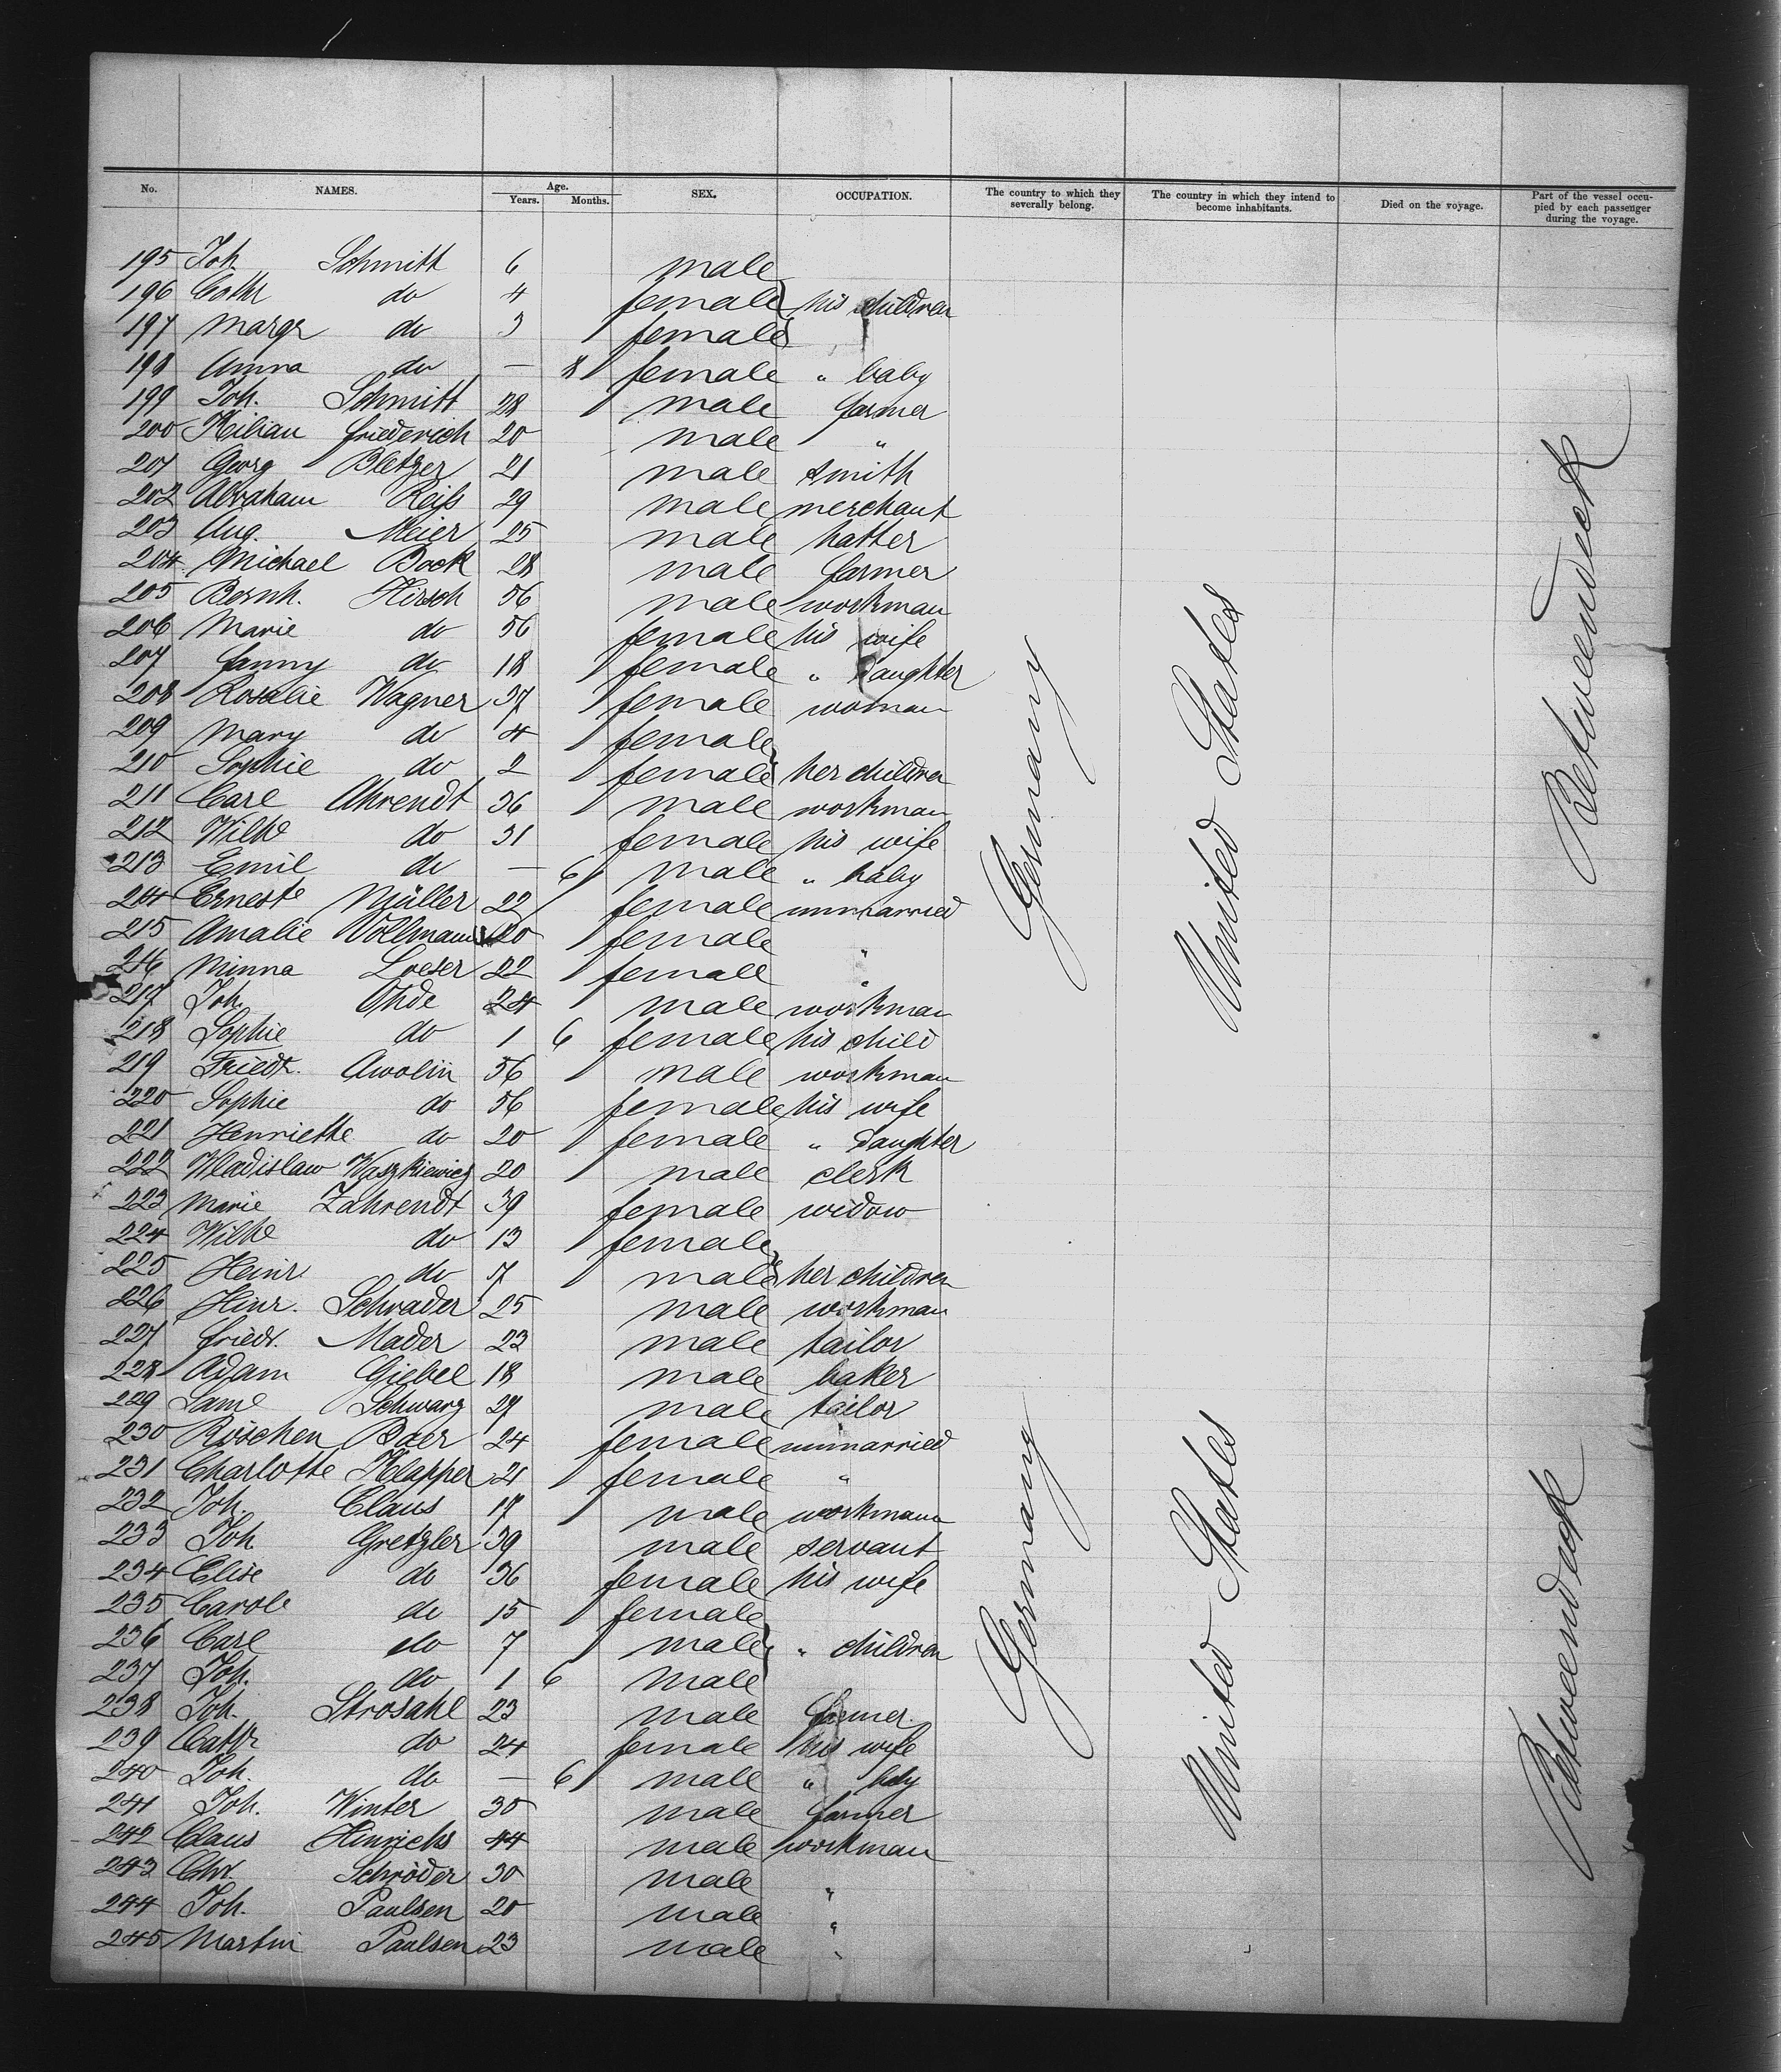 No. NAMES. Age. Years. Months. SEX. OCCUPATION. The country to which they severally belong. The country in which they intend to become inhabitants. Died on the voyage. Part of the vessel occupied by each passenger during the voyage.
195 Joh. Schmitt 6 male
196 Cathr do 4 female his children
197 Margr do 3 female
198 Anna do — 8 female " baby
199 Joh. Schmitt 28 male farmer
200 Kilian Friederich 20 male "
201 Georg Bletzer 21 male smith
202 Abraham Reiß 29 male merchant
203 Aug. Meier 25 male hatter
204 Michael Book 28 male farmer
205 Bernh. Hirsch 56 male workman
206 Marie do 56 female his wife
207 Fanny do 18 female " daughter
208 Rosalie Wagner 37 female woman
209 Mary do 4 female
210 Sophie do 2 female her children
211 Carl Ahrendt 36 male workman
212 Wilhe do 31 female his wife
213 Emil do — 6 male " baby
214 Erneste Müller 22 female unmarried
215 Amalie Vollmann 20 female "
216 Minna Loeser 22 female "
217 Joh. Ohde 24 male workman
218 Sophie do 1 6 female his child
219 Friedr. Awolin 56 male workman
220 Sophie do 56 female his wife
221 Henriette do 20 female " daughter
222 Wladislaw Waszkiewicz 20 male clerk
223 Marie Zahrendt 39 female widow
224 Wilhe do 13 female
225 Heinr. do 7 male her children
226 Hinr. Schrader 25 male workman
227 Friedr. Mader 23 male tailor
228 Adam Giebel 18 male baker
229 Saml Schwarz 29 male tailor
230 Röschen Baer 24 female unmarried
231 Charlotte Klapper 21 female "
232 Joh. Claus 17 male workman
233 Joh. Gretzler 39 male servant
234 Elise do 36 female his wife
235 Carole do 15 female
236 Carl do 7 male " children
237 Joh. do 1 6 male
238 Joh. Strosahl 23 male farmer.
239 Cathr do 24 female his wife
240 Joh. do — 6 male " baby
241 Joh. Winter 30 male farmer
242 Claus Hinrichs 44 male workman
243 Chr. Schröder 30 male "
244 Joh. Paulsen 20 male "
245 Martin Paulsen 23 male "
Germany
United States
Betweendeck
Germany
United States
Betweendeck